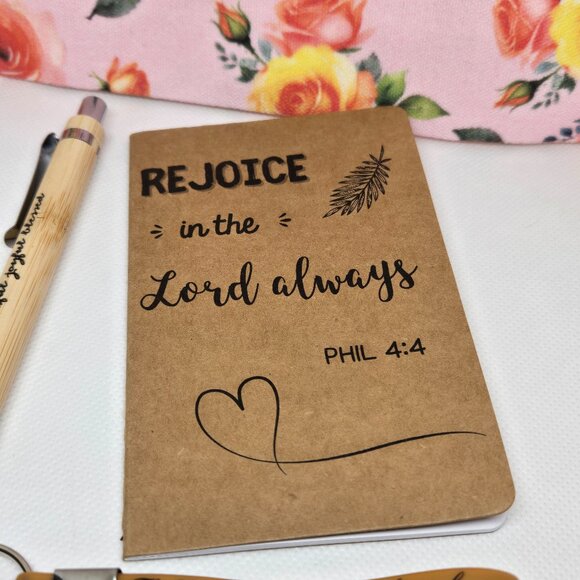 REJOICE
in the
Lord always
PHIL 4:4
joyful blessed